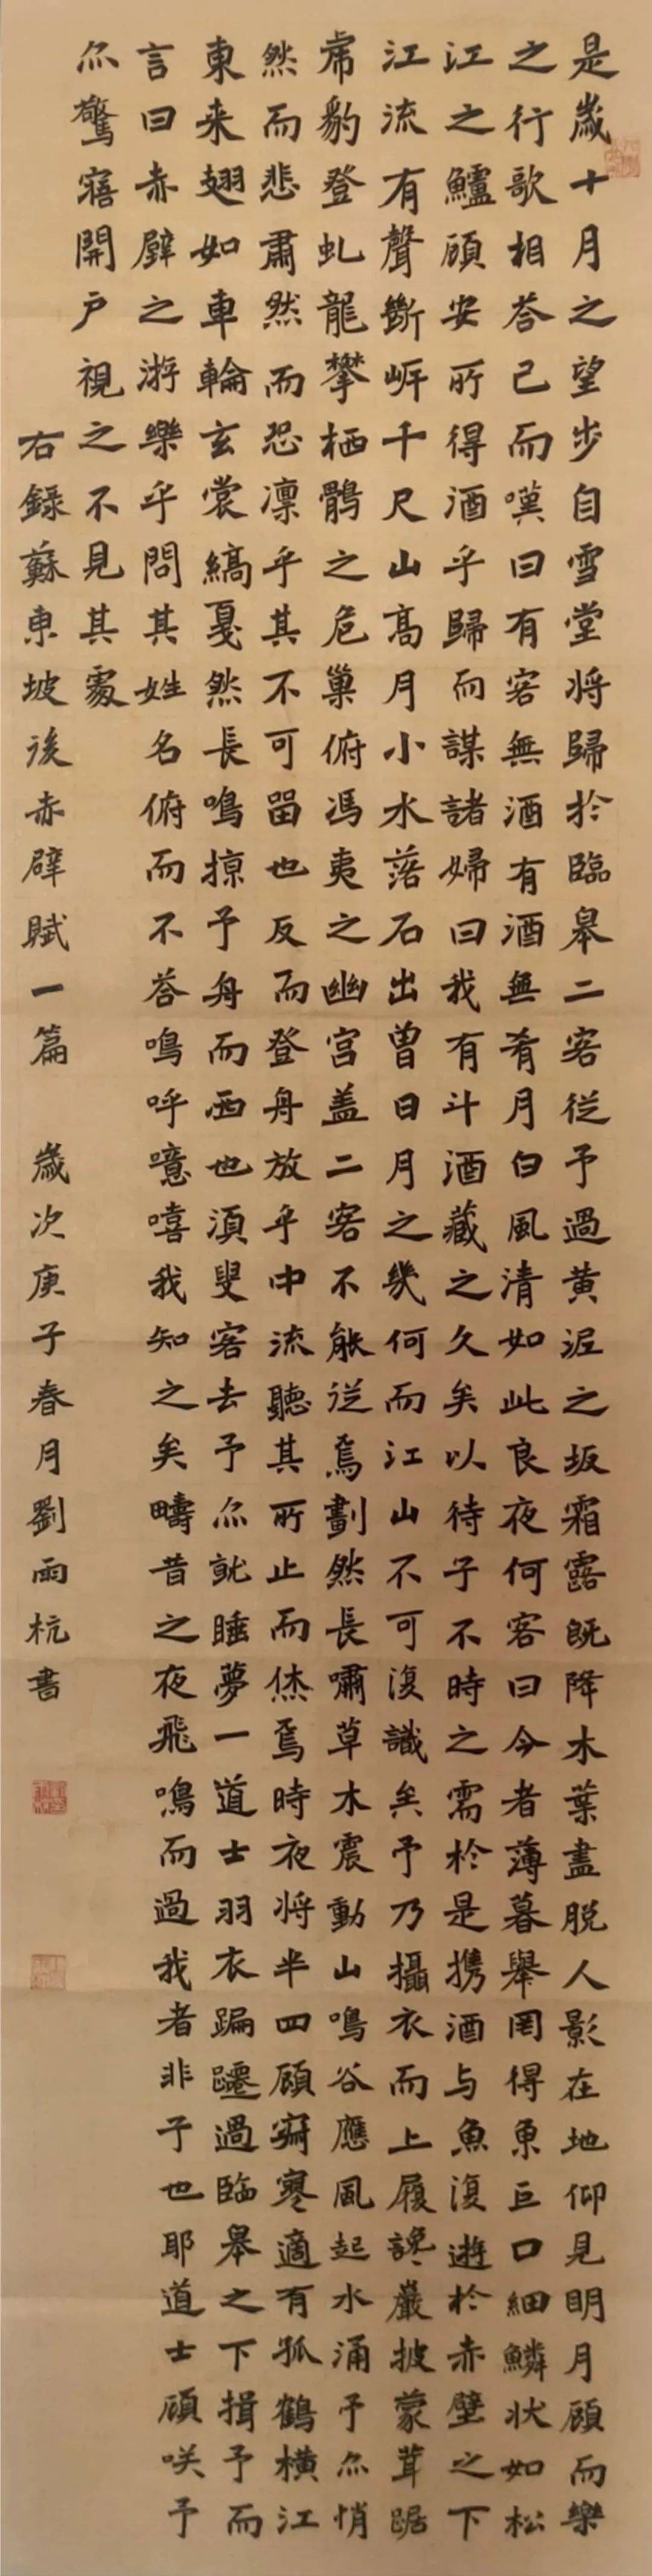 是歲十月之望步自雪堂將歸於臨皋二客從予過黃泥之坂霜露既降木葉盡脫人影在地仰見明月顧而樂
之行歌相荅已而嘆曰有客無酒有酒無肴月白風清如此良夜何客曰今者薄暮舉罔得魚巨口細鱗狀如松
江之鱸顧安所得酒乎歸而謀諸婦曰我有斗酒藏之久矣以待子不時之需於是携酒与魚復遊於赤壁之下
江流有聲斷岸千尺山高月小水落石出曾日月之幾何而江山不可復識矣予乃攝衣而上履讒巖披蒙茸踞
虎豹登虬龍攀栖鶻之危巢俯馮夷之幽宮盖二客不能從焉劃然長嘯草木震動山鳴谷應風起水涌予尒悄
然而悲肅然而恐凛乎其不可留也反而登舟放乎中流聽其所止而休焉時夜將半四顧寂寥適有孤鶴橫江
東来翅如車輪玄裳縞戛然長鳴掠予舟而西也須叟客去予尒就睡夢一道士羽衣蹁躚過臨皋之下揖予而
言曰赤壁之游樂乎問其姓名俯而不荅鳴呼噫嘻我知之矣疇昔之夜飛鳴而過我者非子也耶道士顧咲予
尒驚寤開户視之不見其處
右錄蘇東坡後赤壁賦一篇 歲次庚子春月劉雨杭書